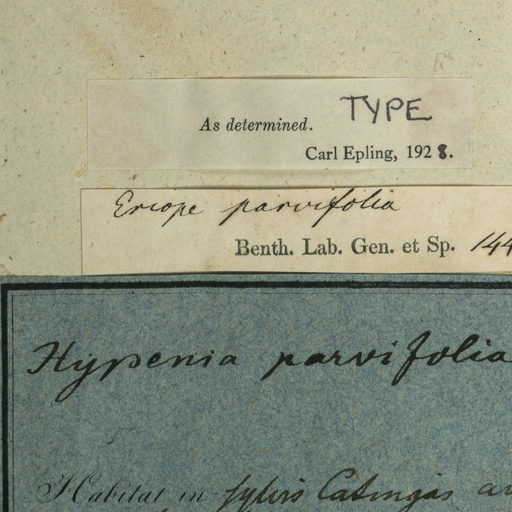 TYPE
As determined.
Carl Epling, 1928.
Eriope parvifolia
Benth. Lab. Gen. et Sp. 144
Hypenia parvifolia
Habitat in sylvis Catingas